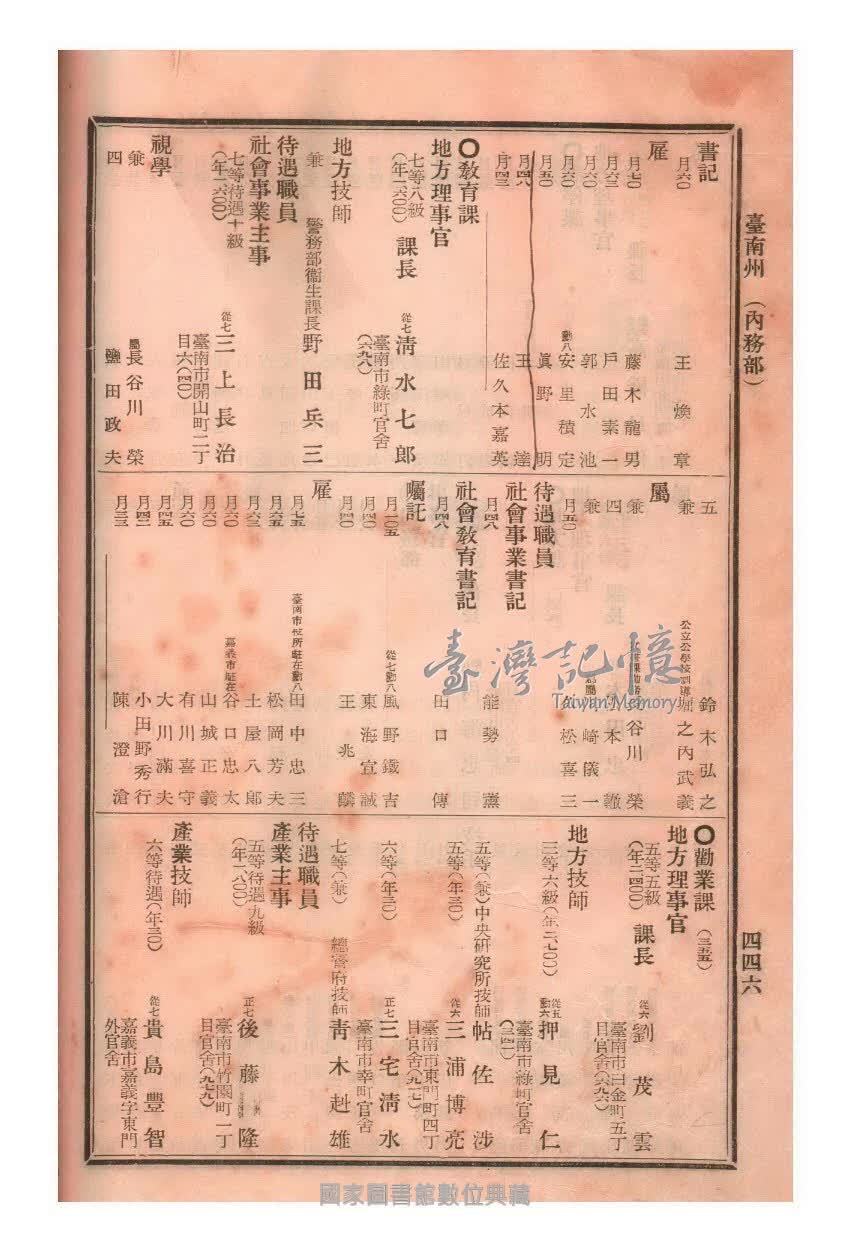 臺南州（內務部）
四四六
書記
月六〇 王煥章
雇
月七〇 藤木龍男
月六三 戶田素一
月六〇 郭水池
月六〇 勳八 安里積定
月五〇 眞野明
月四八 王達
月四三 佐久本嘉英
〇敎育課
地方理事官
七等八級 課長 從七 淸水七郎
（年一、六〇〇） 臺南市綠町官舍
（六九八）
地方技師
兼 警務部衞生課長 野田兵三
待遇職員
社會事業主事
七等待遇十級 從七 三上長治
（年一、六〇〇） 臺南市開山町二丁
目六（四〇）
視學
兼 屬 長谷川榮
四 鹽田政夫
五 鈴木弘之
兼 堀之內武義
屬
兼 谷川榮
四 本徹
兼 崎儀一
月五〇 松喜三
待遇職員
社會事業書記
月四八 能勢薰
社會敎育書記
月四八 田口傳
囑託
月一〇五 從七勳八 風野鐵吉
月四〇 東海宜誠
月四〇 王兆麟
雇
月七五 臺南市役所駐在勳八 田中忠三
月六五 松岡芳夫
月六三 土屋八郎
月六〇 嘉義市駐在 谷口忠太
月六〇 山城正義
月六〇 有川喜守
月四五 大川滿夫
月四二 小田野秀行
月三三 陳澄滄
〇勸業課（三五五）
地方理事官
五等五級 課長 從六 劉茂雲
（年二、四〇〇） 臺南市白金町五丁
目官舍（六九六）
地方技師
三等六級（年二、七〇〇） 從五勳六 押見仁
臺南市綠町官舍
五等（兼）中央硏究所技師 帖佐涉
五等（年三〇） 從六 三浦博亮
臺南市東門町四丁
目官舍（九一七）
六等（年三〇） 正七 三宅淸水
臺南市幸町官舍
七等（兼） 總督府技師 靑木赳雄
待遇職員
產業主事
五等待遇九級 正七 後藤隆
（年一、八〇〇） 臺南市竹園町一丁
目官舍（九七九）
產業技師
六等待遇（年三〇） 從七 貴島豐智
嘉義市嘉義字東門
外官舍
臺灣記憶
Taiwan Memory
國家圖書館數位典藏